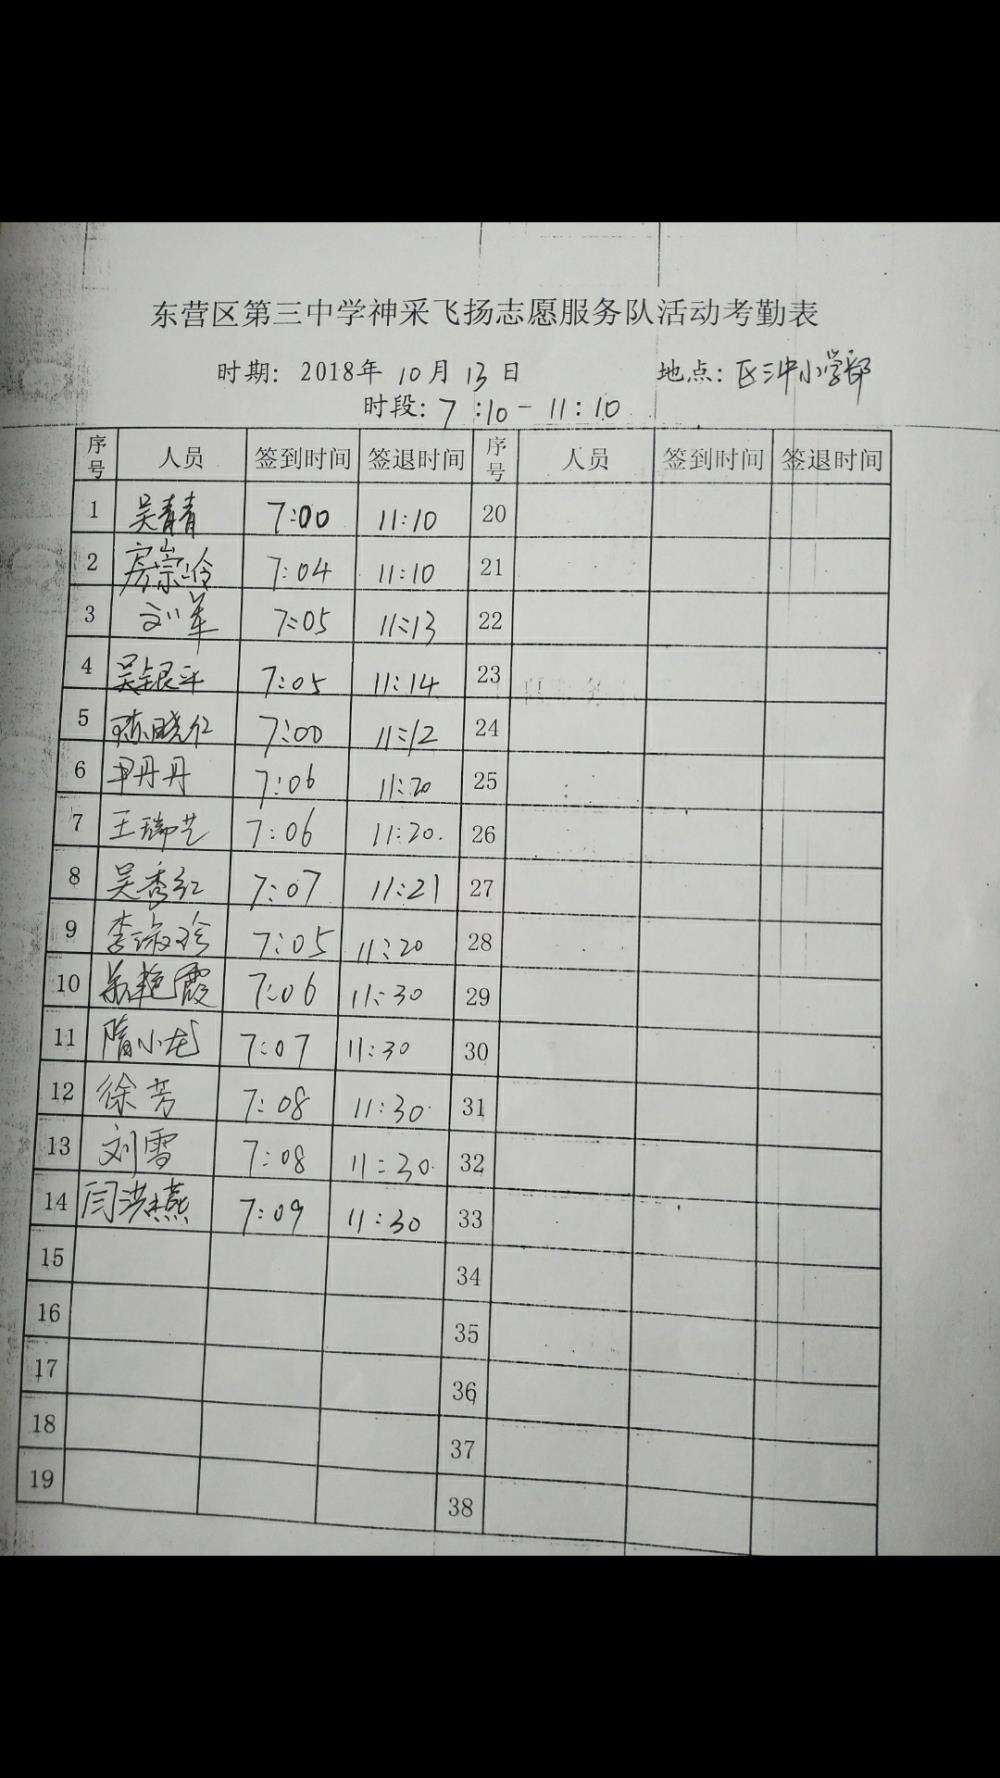 东营区第三中学神采飞扬志愿服务队活动考勤表
时期：2018年 10月 13日 地点：区三中小学部
时段：7:10-11:10
序号 人员 签到时间 签退时间 序号 人员 签到时间 签退时间
1 吴青青 7:00 11:10 20
2 房崇玲 7:04 11:10 21
3 刘军 7:05 11:13 22
4 吴银平 7:05 11:14 23
5 陈晓红 7:00 11:12 24
6 尹丹丹 7:06 11:20 25
7 王瑞芝 7:06 11:20 26
8 吴秀红 7:07 11:21 27
9 李淑珍 7:05 11:20 28
10 艳霞 7:06 11:30 29
11 隋小龙 7:07 11:30 30
12 徐芳 7:08 11:30 31
13 刘雪 7:08 11:30 32
14 闫洪燕 7:09 11:30 33
15 34
16 35
17 36
18 37
19 38